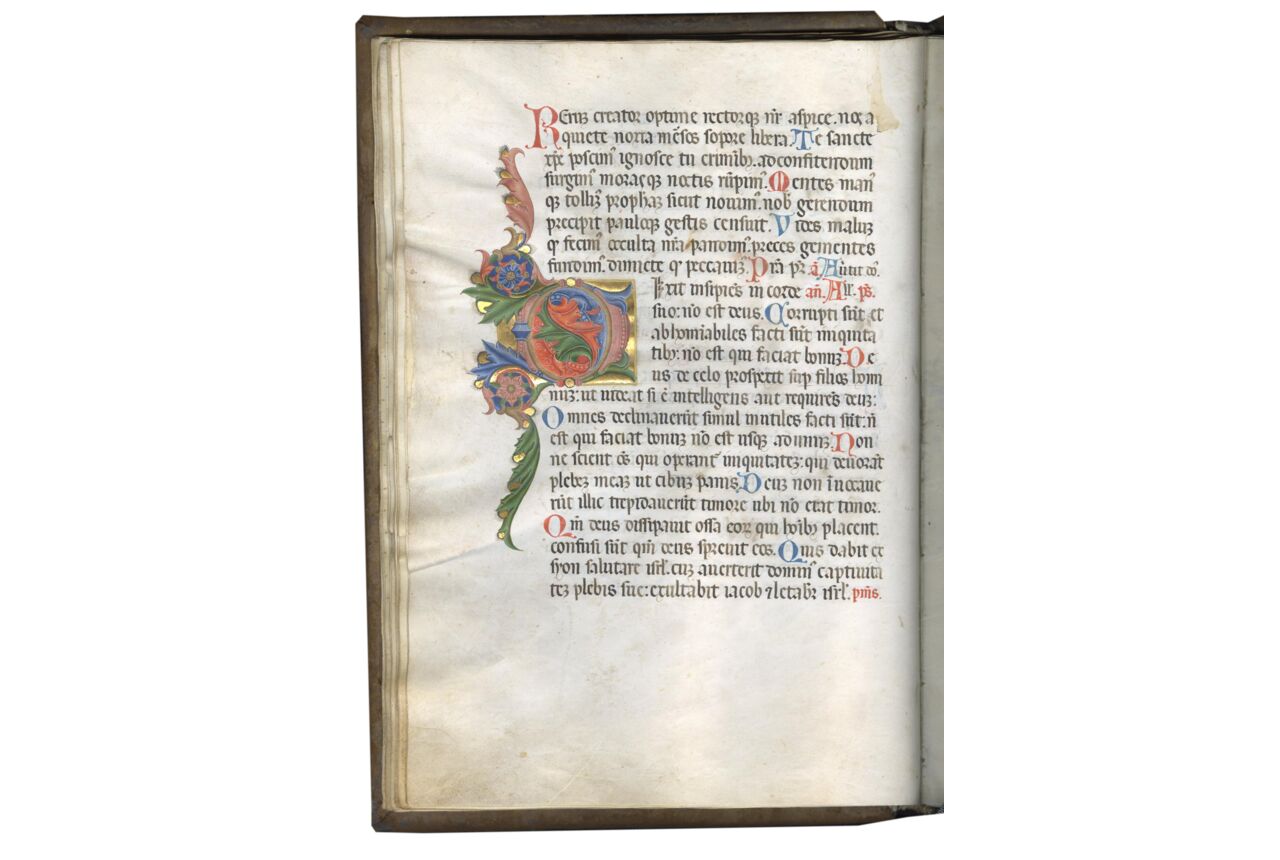 Reruz creator optime rectorqz nr̄ aspice. nos a
quiete noxia mēsos sopore libera. Te sancte
xp̄e poscim᷒ ignosce tu criminibꝫ. ad confitendum
surgim᷒ morasqꝫ noctis rūpim᷒. Mentes man᷒
qꝫ tollim᷒ prophās sicut novim᷒. nob᷒ gerendum
precipit paulusqꝫ gestis censuit. Vides maluꝫ
q᷒ fecim᷒ occulta nr̄a pandim᷒. preces gementes
fundim᷒. dimitte q᷒ peccavim᷒. Pr̄a pr̄. ā. Avtit dō.
Dixit insipiēs in corde añ. All. ps.
suo: nō est deus. Corrupti sūt et
abhomiabiles facti sūt iniquita
tibꝫ: nō est qui faciat bonuꝫ. De
us de celo prospexit sup filios homi
nuꝫ: ut videat si ē intelligens aut requirēs deuꝫ:
Omnes declinaverūt simul inutiles facti sūt: nō
est qui faciat bonuꝫ nō est usqꝫ ad unuꝫ. Non
ne scient oēs qui operant᷒ iniquitateꝫ: qui devorāt
plebeꝫ meaꝫ ut cibuꝫ panis. Deuꝫ non īvocave
rūt illic trepidaverūt timore ubi nō erat timor.
Qm̄ deus dissipavit ossa eorꝫ qui hoībꝫ placent.
confusi sūt qm̄ deus sprevit eos. Quis dabit ex
syon salutare isrl̄. cuꝫ averterit domin᷒ captivita
teꝫ plebis sue: exultabit iacob ⁊ letabr̄ isrl̄. pm̄s.